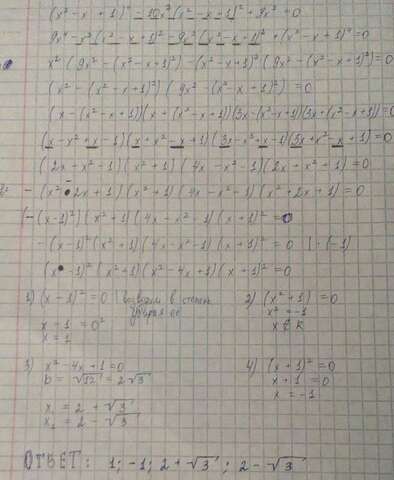 (x² - x + 1)⁴ - 10x²(x² - x + 1)² + 9x⁴ = 0
9x⁴ - x²(x² - x + 1)² - 9x²(x² - x + 1)² + (x² - x + 1)⁴ = 0
x²(9x² - (x² - x + 1)²) - (x² - x + 1)²(9x² - (x² - x + 1)²) = 0
(x² - (x² - x + 1)²)(9x² - (x² - x + 1)²) = 0
(x - (x² - x + 1))(x + (x² - x + 1))(3x - (x² - x + 1))(3x + (x² - x + 1)) = 0
(x - x² + x - 1)(x + x² - x + 1)(3x - x² + x - 1)(3x + x² - x + 1) = 0
(2x - x² - 1)(x² + 1)(4x - x² - 1)(2x + x² + 1) = 0
- (x² - 2x + 1)(x² + 1)(4x - x² - 1)(x² + 2x + 1) = 0
(- (x - 1)²)(x² + 1)(4x - x² - 1)(x + 1)² = 0
- (x - 1)²(x² + 1)(4x - x² - 1)(x + 1)² = 0 | · (-1)
(x - 1)²(x² + 1)(x² - 4x + 1)(x + 1)² = 0
1) (x - 1)² = 0 | возводим в степень
убирая её
x - 1 = 0²
x = 1
2) (x² + 1) = 0
x² = -1
x ∉ R
3) x² - 4x + 1 = 0
D = √12 = 2√3
x₁ = 2 + √3
x₂ = 2 - √3
4) (x + 1)² = 0
x + 1 = 0
x = -1
ОТВЕТ: 1; -1; 2 + √3; 2 - √3